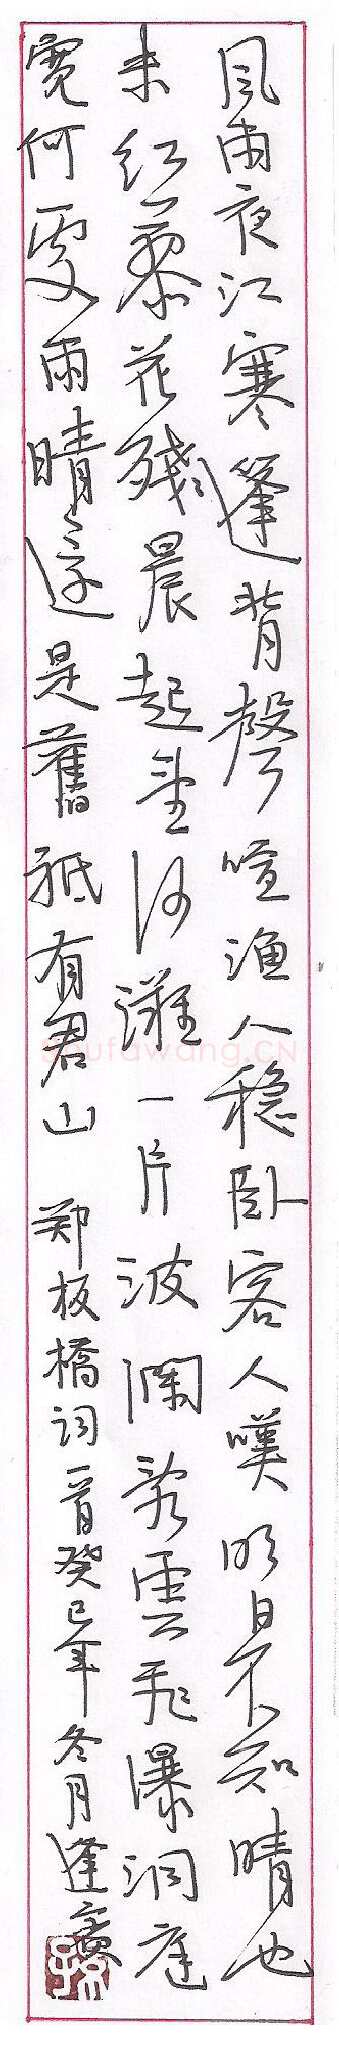 風雨夜江寒篷背聲喧渔人稳卧客人嘆明日不知晴也
未红蓼花殘晨起望沙灘一片波瀾亂雲飛瀑洞庭
寬何處雨晴還是舊祇有君山 郑板橋词一首癸巳年冬月逢
shufawang.CN